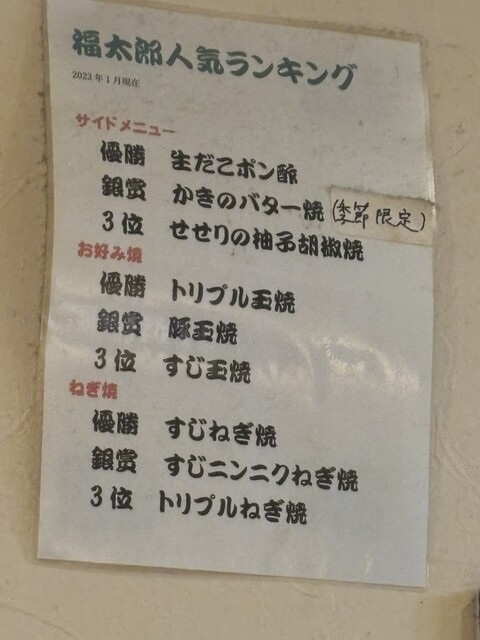 福太郎人気ランキング
2023年1月現在
サイドメニュー
優勝 生だこポン酢
銀賞 かきのバター焼(季節限定)
3位 せせりの柚子胡椒焼
お好み焼
優勝 トリプル玉焼
銀賞 豚玉焼
3位 すじ玉焼
ねぎ焼
優勝 すじねぎ焼
銀賞 すじニンニクねぎ焼
3位 トリプルねぎ焼